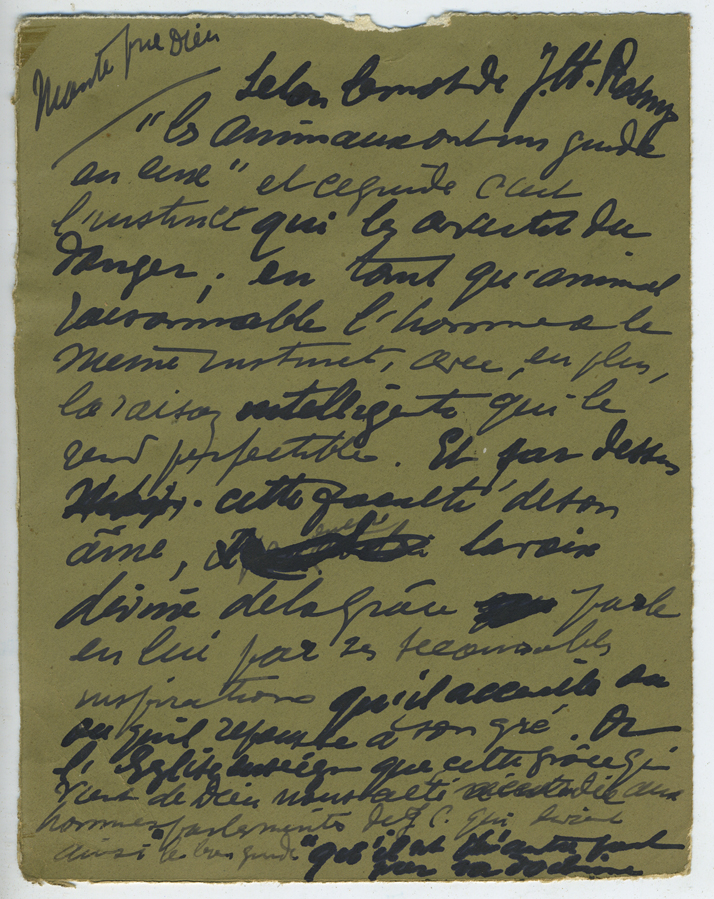 que Dieu
Selon le mot de J.H. Rosny
"les animaux ont un guide
en eux" et ce guide c'est
l'instinct qui les avertit du
danger ; en tant qu'animal
raisonnable l'homme a le
même instinct, avec, en plus,
la raison intelligente qui le
rend perfectible. Et par dessus
cette faculté de son
âme, la voix
divine de la grâce parle
en lui par ses
inspirations qu'il accueille ou
ou qu'il repousse à son gré. Or
l'Eglise enseigne que cette grâce qui
vient de Dieu nous a été aux
hommes par les mérites de J. C. qui
ainsi "le bon guide" "qu'il est
par sa doctrine